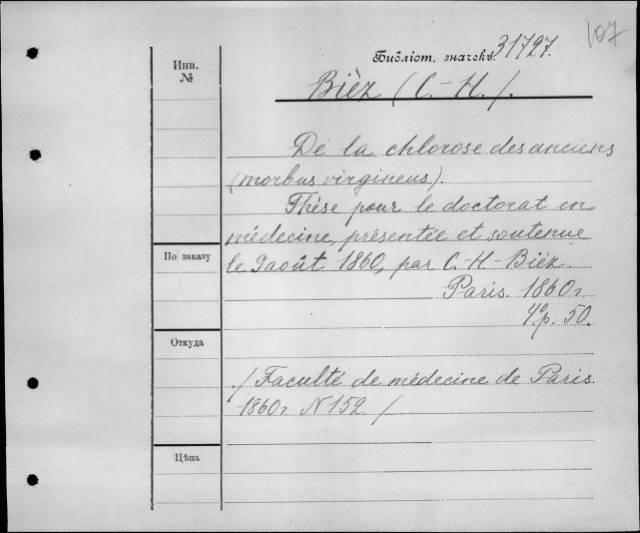 107
Библіот. значекъ 31727.
Инв.
№
Bièz (C.-H.).
De la chlorose des anciens
(morbus virgineus).
Thèse pour le doctorat en
médecine, présentée et soutenue
le 9 août 1860, par C.-H- Bièz.
Paris. 1860 г.
4° p. 50.
По заказу
Откуда
/ Faculté de médecine de Paris.
1860 г. N 152 /
Цѣна